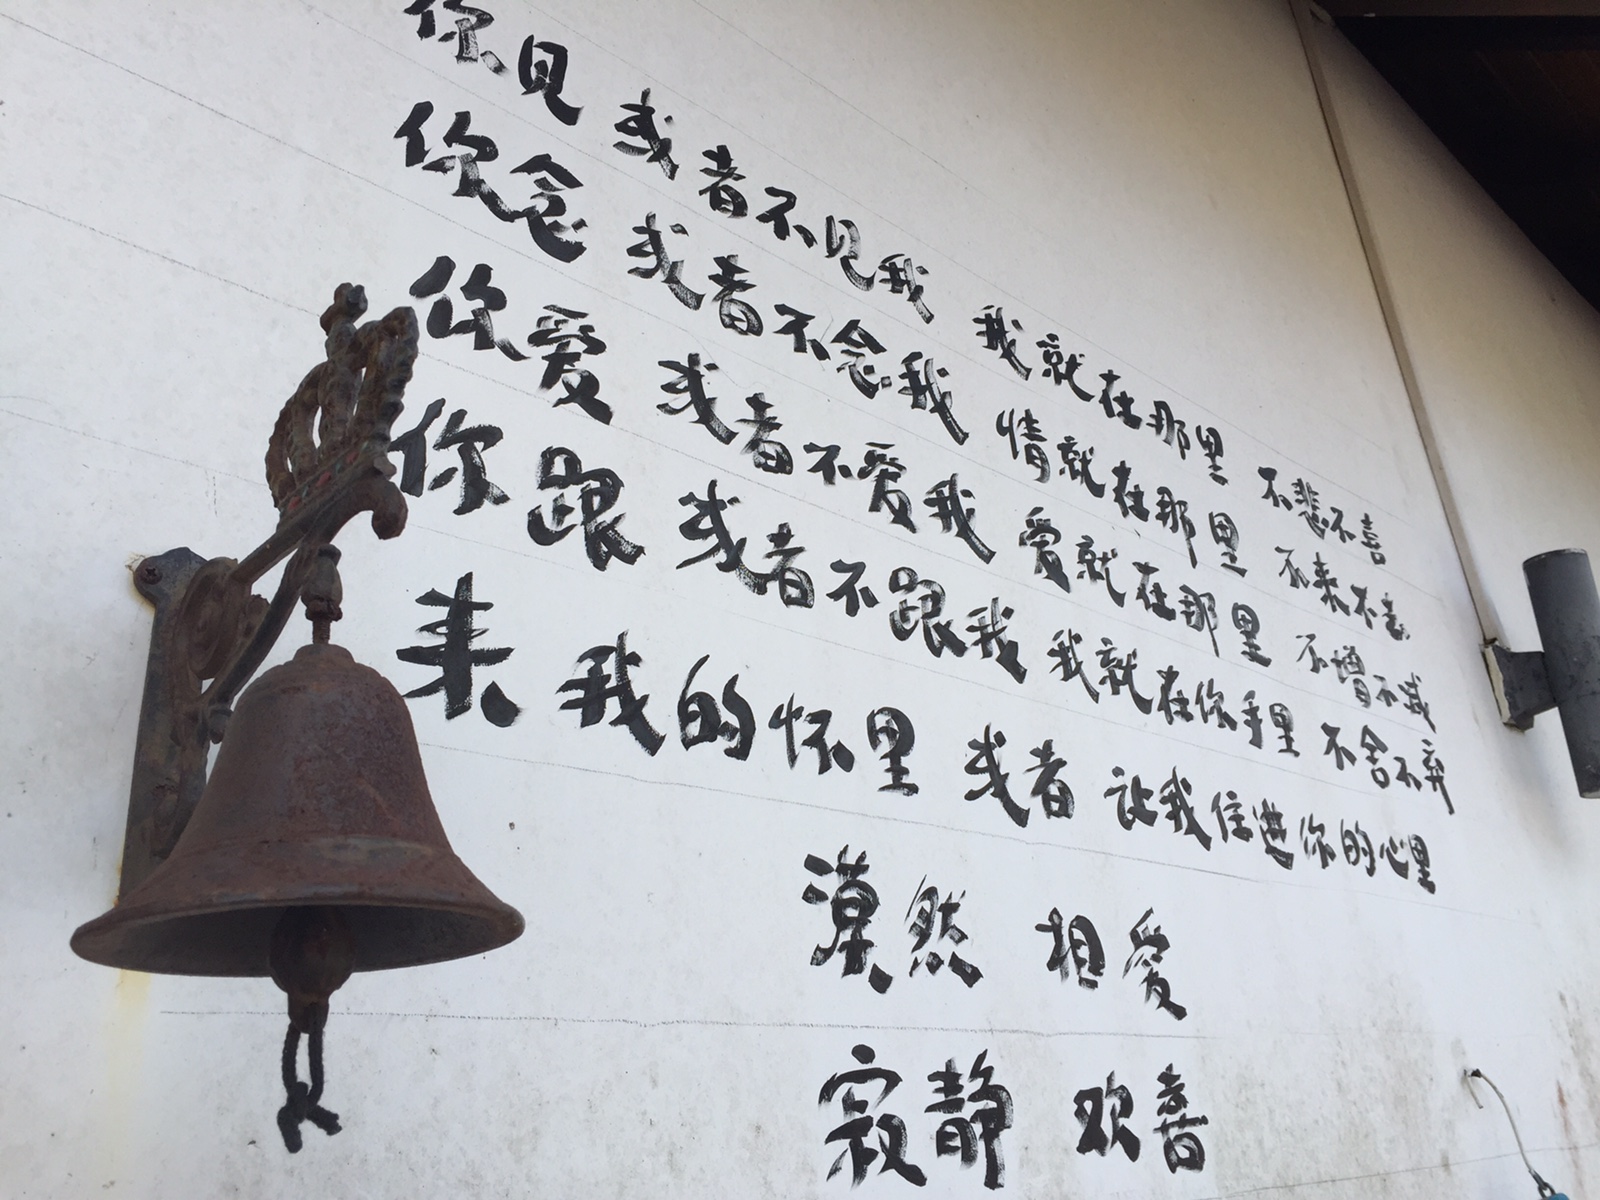 你见 或者不见我 我就在那里 不悲不喜
你念 或者不念我 情就在那里 不来不去
你爱 或者不爱我 爱就在那里 不增不减
你跟 或者不跟我 我就在你手里 不舍不弃
来我的怀里 或者 让我住进你的心里
漠然 相爱
寂静 欢喜